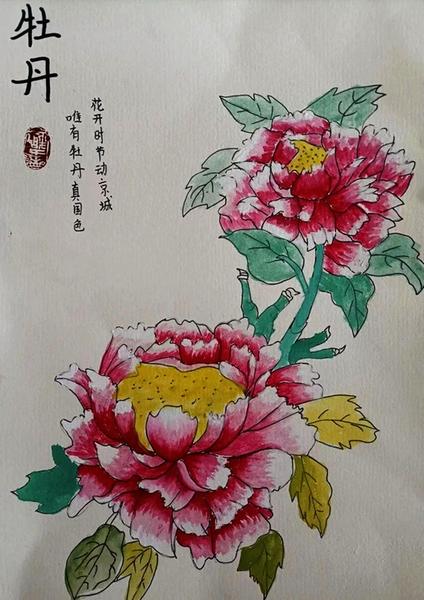 牡丹
唯有牡丹真国色
花开时节动京城